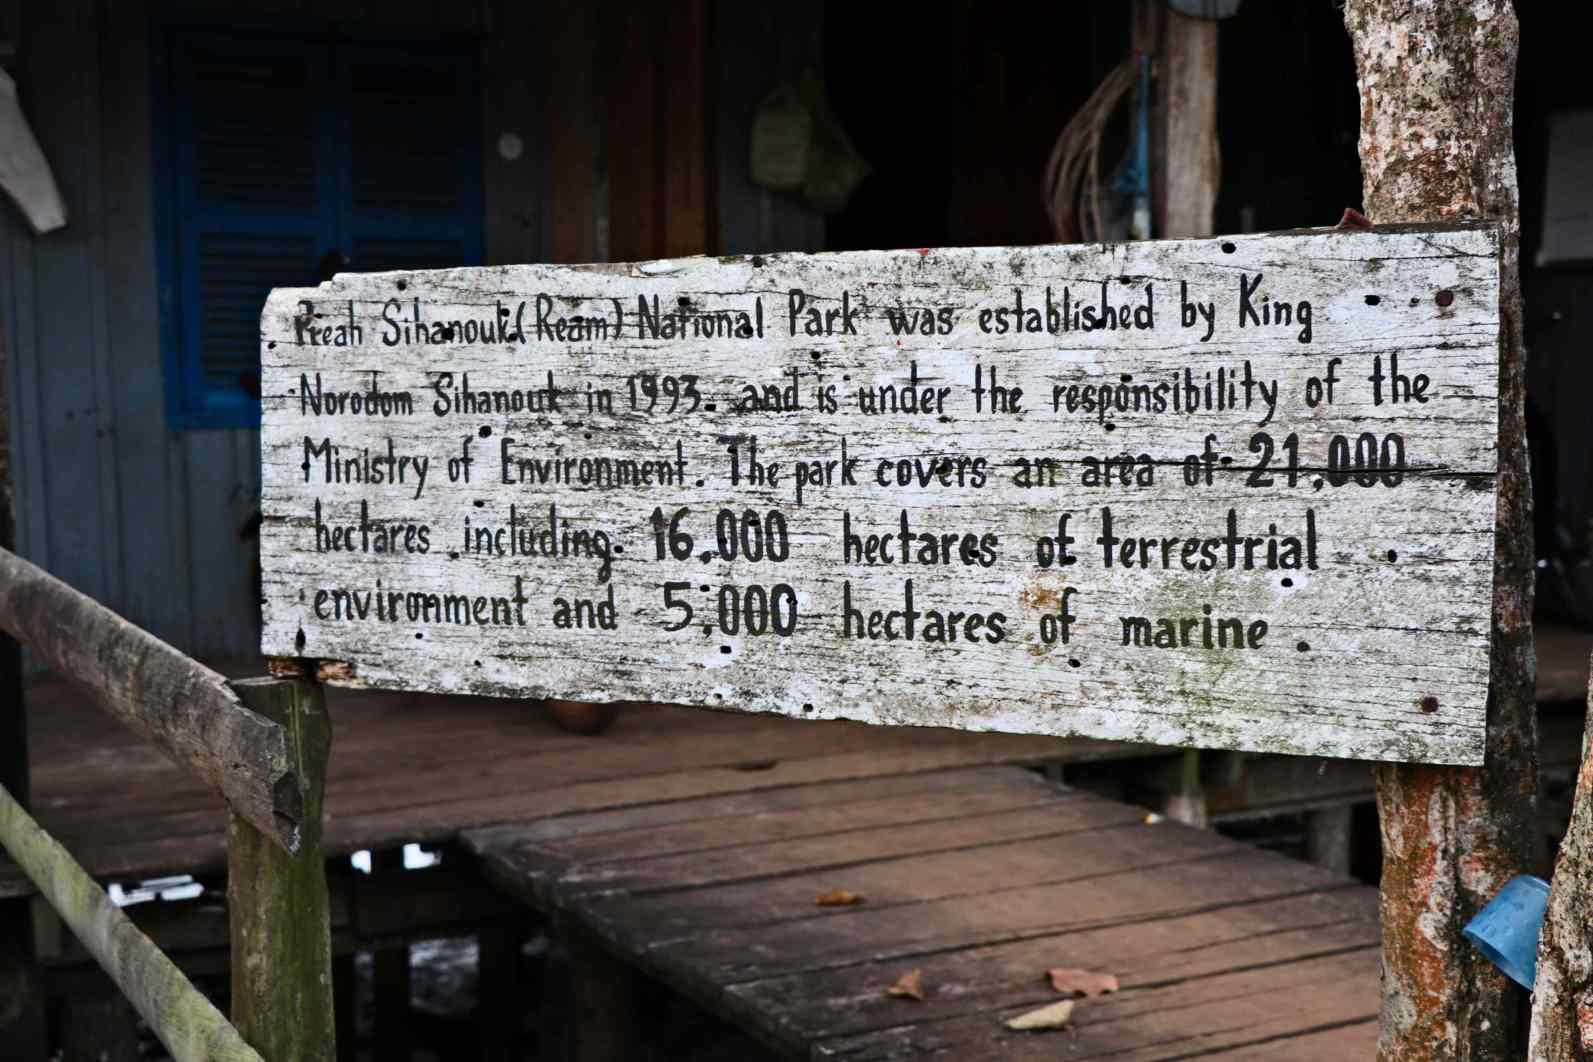 Preah Sihanouk(Ream) National Park was established by King
Norodom Sihanouk in 1993. and is under the responsibility of the
Ministry of Environment. The park covers an area of 21,000
hectares including 16,000 hectares of terrestrial
environment and 5,000 hectares of marine.